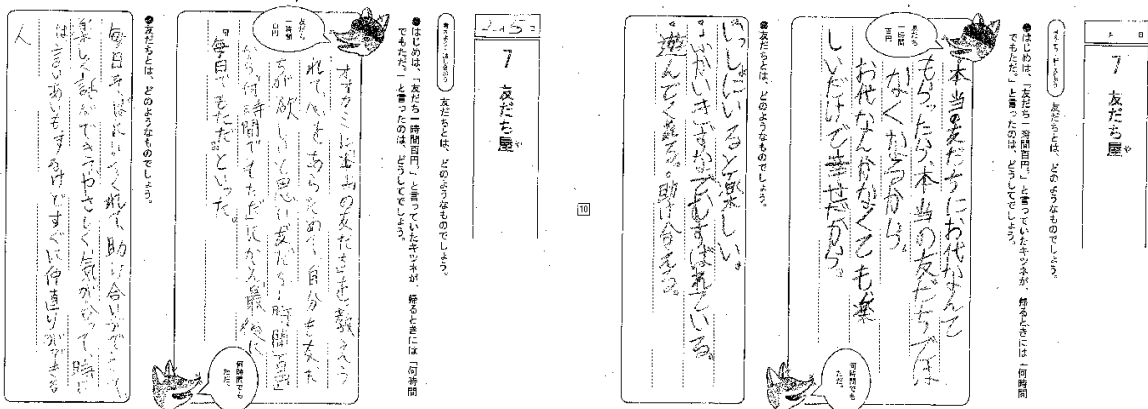 月 日
7 友だち屋
や
友だちとは、どのようなものでしょう。
はじめは、「友だち一時間百円。」と言っていたキツネが、帰るときには「何時間
でもただ。」と言ったのは、どうしてでしょう。
友だち
一時間
百円
本当の友だちにお代なんて
もらったら、本当の友だちでは
なくなるから。
お代なんかなくても楽
しいだけで幸せだから。
何時間でも
ただ。
友だちとは、どのようなものでしょう。
いっしょにいると楽しい。
遊んでくれる。助け合える。
10
7 友だち屋
や
考えよう・話し合おう
友だちとは、どのようなものでしょう。
はじめは、「友だち一時間百円。」と言っていたキツネが、帰るときには「何時間
でもただ。」と言ったのは、どうしてでしょう。
友だち
一時間
百円
オオカミに本当の友だちを教えてもら
れて、心をあらためて、自分も友だ
ちが欲しいと思い友だち一時間百円
から、何時間でもただにかえ最後に
毎日でもただといった。
何時間でも
ただ。
友だちとは、どのようなものでしょう。
毎日そばにいてくれて、助け合いができて、
楽しく話ができてやさしく気があって、時に
は言いあいもするけどすぐに仲直りができる
人